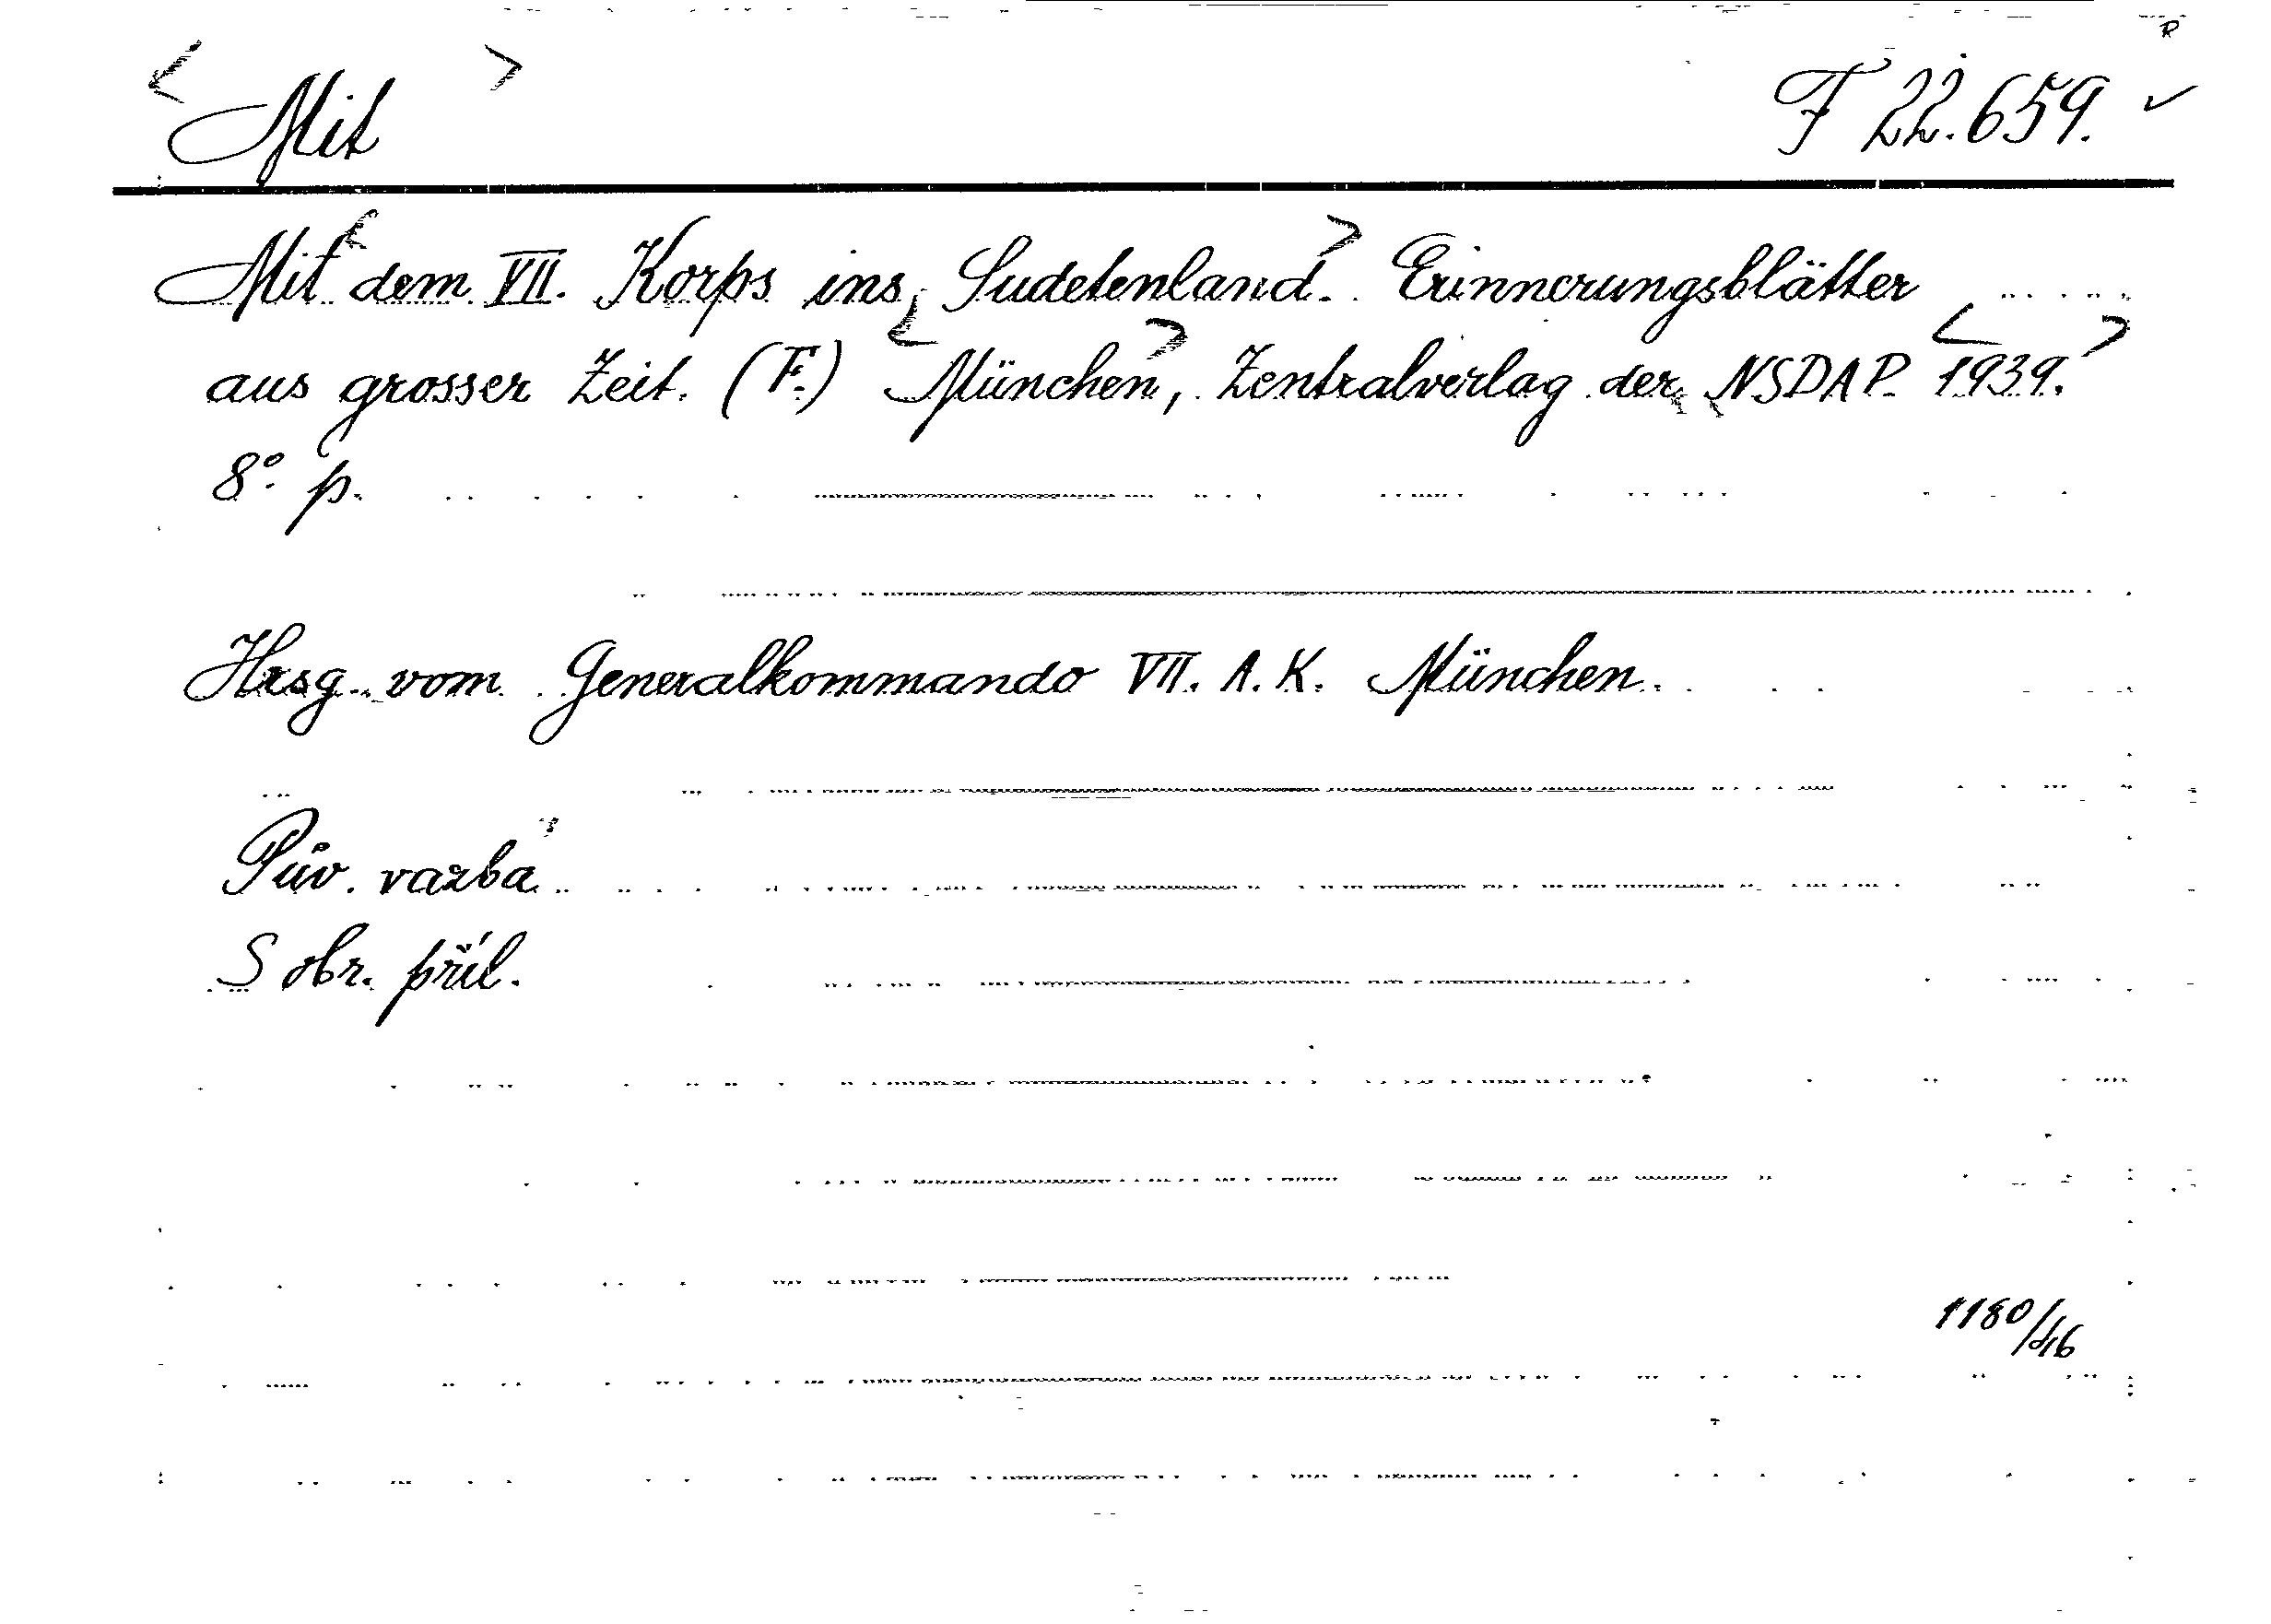 Mit F 22.659.
Mit dem VII. Korps ins Sudetenland. Erinnerungsblätter
aus grosser Zeit. (F.) München, Zentralverlag der NSDAP. 1939.
8°. p.
Hrsg. vom Generalkommando VII. A. K. München.
Pův. vazba
S obr. příl.
1180/46